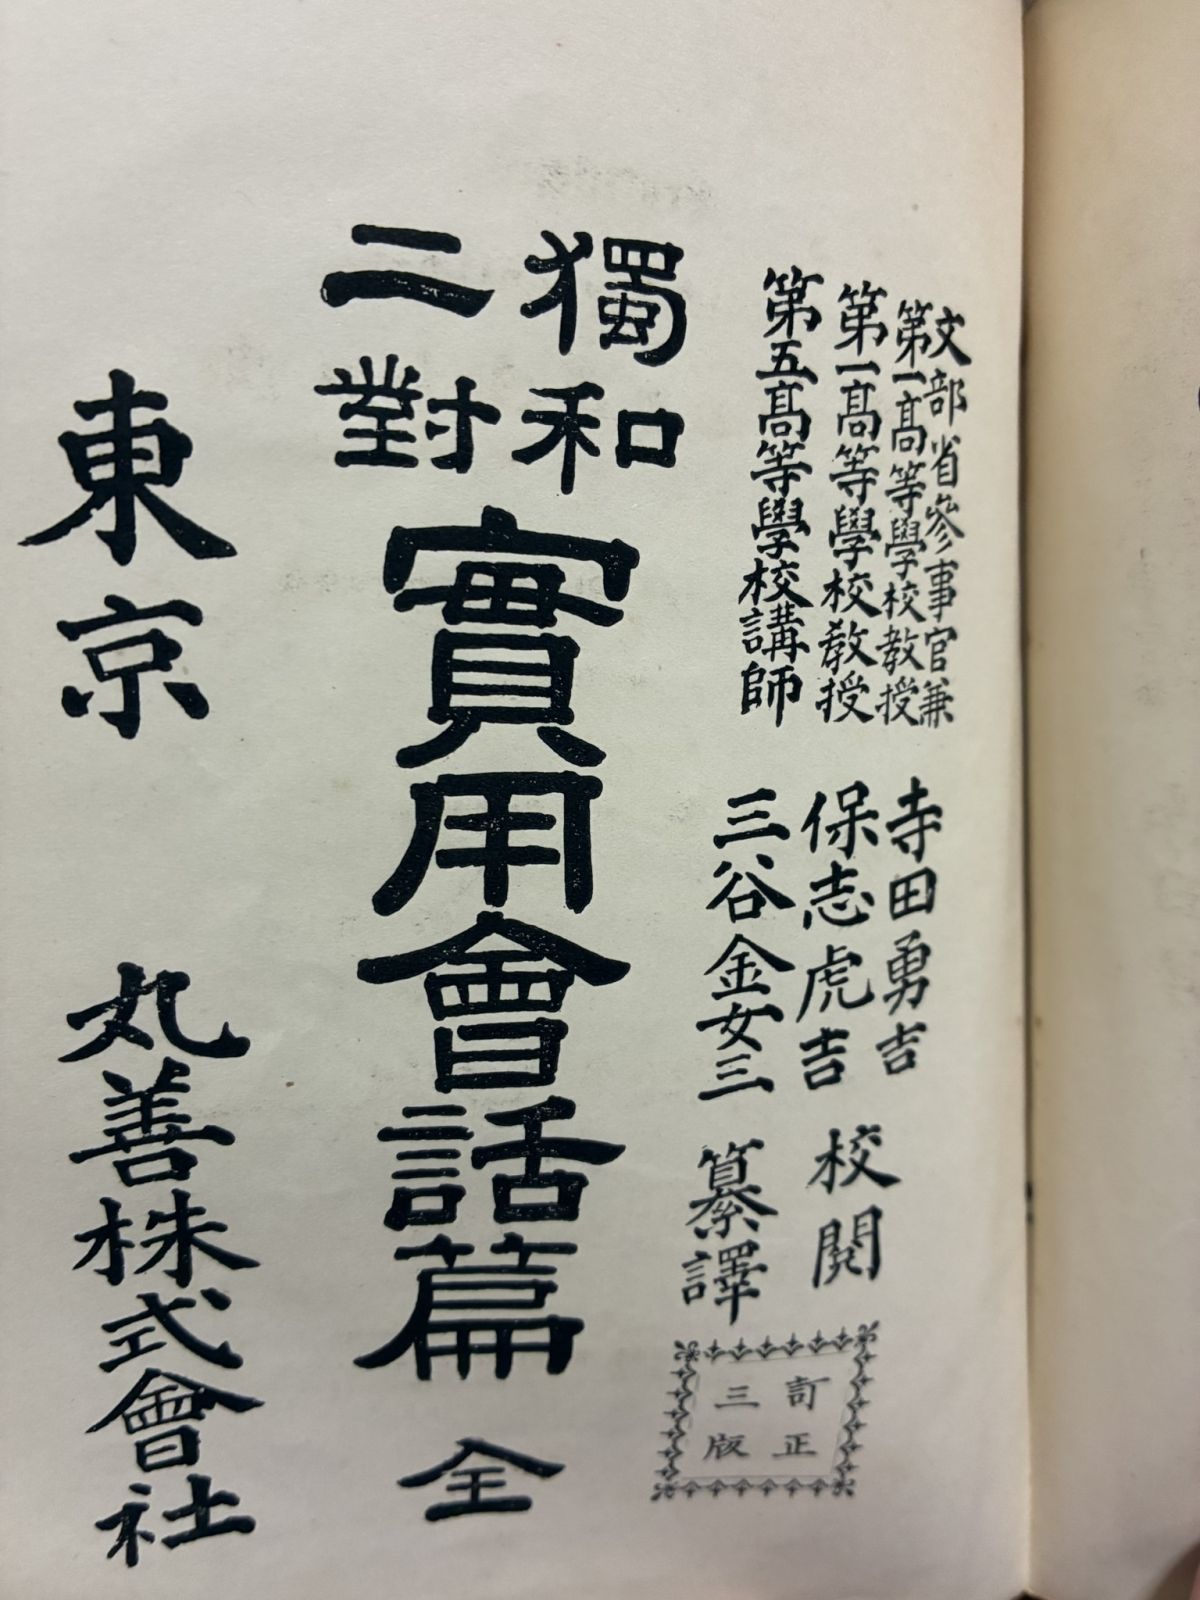 文部省參事官兼
第一高等學校教授
寺田勇吉
第一高等學校教授
保志虎吉
校閱
第五高等學校講師
三谷金女三
纂譯
訂正
三版
獨和
二對
實用會話篇 全
東京 丸善株式會社